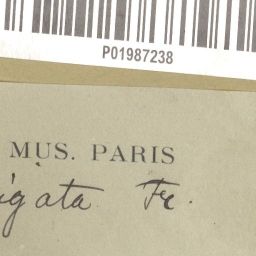 P01987238
MUS. PARIS
igata Fr.